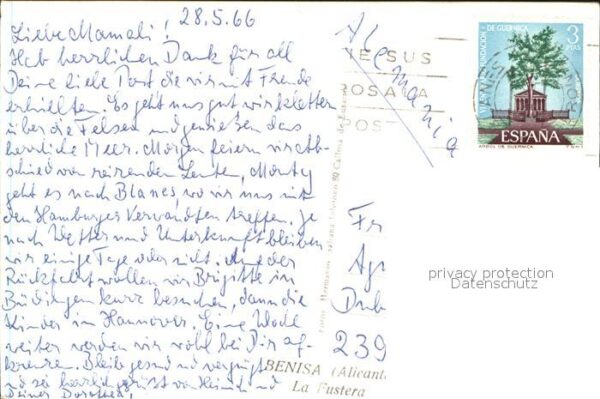 28.5.66
Liebe Mamali!
Hab herrlichen Dank für all
Deine liebe Post die wir mit Freude
erhielten. Es geht uns gut wir klettern
über die Felsen und genießen das
herrliche Meer. Morgen feiern wir Ab-
schied von reizenden Leuten, Montag
geht es nach Blanes, wo wir uns mit
den Hamburger Verwandten treffen. Je
nach Wetter und Unterkunft bleiben
wir einige Tage oder nicht. Auf der
Rückfahrt wollen wir Brigitte in
Büdingen kurz besuchen, dann die
Kinder in Hannover. Eine Woche
weiter werden wir wohl bei Dir auf-
kreuzen. Bleibe gesund und vergnügt
und sei herzlich gegrüßt von Heinich und
Deiner Dorothea!
Alemania
JESUS
POST
Fr
239
BENISA (Alicant
La Fustera
FUNDACION DE GUERNICA
3
PTAS
ESPAÑA
ARBOL DE GUERNICA
privacy protection
Datenschutz